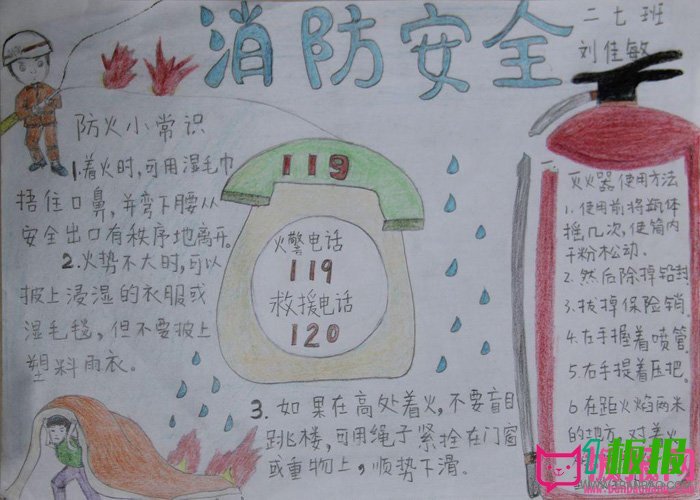 消防安全
二七班
刘佳敏
防火小常识
1.着火时,可用湿毛巾
捂住口鼻,并弯下腰从
安全出口有秩序地离开。
2.火势不大时,可以
披上浸湿的衣服或
湿毛毯,但不要披上
塑料雨衣。
119
火警电话
119
救援电话
120
3.如果在高处着火,不要盲目
跳楼,可用绳子紧拴在门窗
或重物上,顺势下滑。
灭火器使用方法
1.使用前将瓶体
摇几次,使筒内
干粉松动.
2.然后除掉铅封
3.拔掉保险销.
4.左手握着喷管
5.右手提着压把.
6在距火焰两米
的地方,对着火
板报